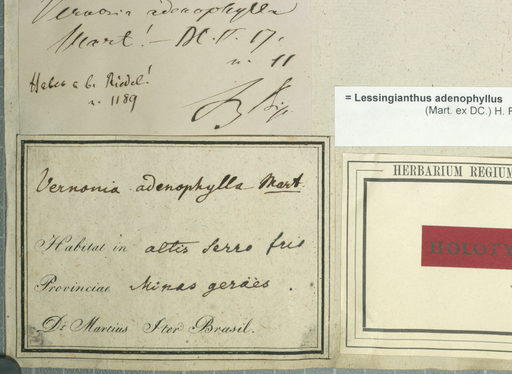 Vernonia adenophylla
Mart! — DC. V. 17.
n. 11
Habeo a b. Riedel!
n. 1189
= Lessingianthus adenophyllus
(Mart. ex DC.) H.
Vernonia adenophylla Mart.
Habitat in altis Serro frio
Provinciae Minas geraës .
Dr. Martius Iter Brasil.
HERBARIUM REGIUM
HOLOTY